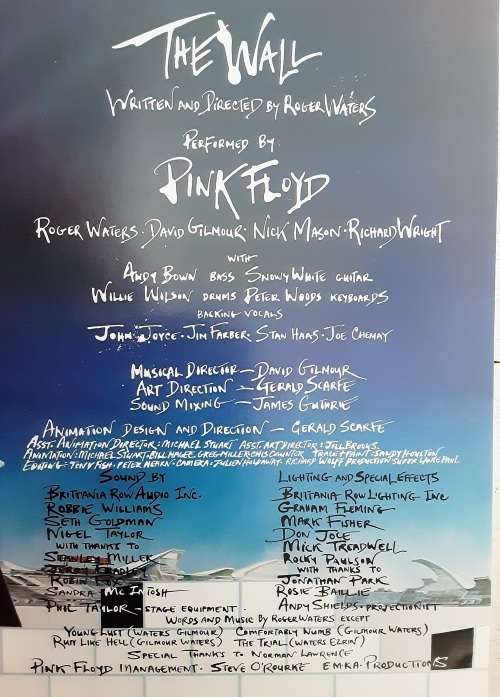 THE WALL
WRITTEN AND DIRECTED BY ROGER WATERS
PERFORMED BY
PINK FLOYD
ROGER WATERS · DAVID GILMOUR · NICK MASON · RICHARD WRIGHT
WITH
ANDY BOWN BASS SNOWY WHITE GUITAR
WILLIE WILSON DRUMS PETER WOODS KEYBOARDS
BACKING VOCALS
JOHN JOYCE · JIM FARBER · STAN HAAS · JOE CHEMAY
MUSICAL DIRECTOR — DAVID GILMOUR
ART DIRECTION — GERALD SCARFE
SOUND MIXING — JAMES GUTHRIE
ANIMATION DESIGN AND DIRECTION — GERALD SCARFE
ASST. ANIMATION DIRECTOR: MICHAEL STUART ASST. ART DIRECTOR: JILL BROOKS.
ANIMATION: MICHAEL STUART · BILL HAGEE · GREG MILLER · CHIS TRACE + PAINT · SANDY HOULTON
EDITING: TONY FISH · PETER HEARN · CAMERA · JULIEN HOLDAWAY · RICHARD WOLFF PRODUCTION SUPER
SOUND BY
BRITTANIA ROW AUDIO INC.
ROBBIE WILLIAMS
SETH GOLDMAN
NIGEL TAYLOR
WITH THANKS TO
STANLEY MILLER
ROBIN
SANDRA MC INTOSH
PHIL TAYLOR — STAGE EQUIPMENT
LIGHTING AND SPECIAL EFFECTS
BRITTANIA ROW LIGHTING INC
GRAHAM FLEMING
MARK FISHER
DON JOLE
MICK TREADWELL
ROCKY PAULSON
WITH THANKS TO
JONATHAN PARK
ROSIE BAILLIE
ANDY SHIELDS · PROJECTIONIST
WORDS AND MUSIC BY ROGER WATERS EXCEPT
YOUNG LUST (WATERS GILMOUR) COMFORTABLY NUMB (GILMOUR WATERS)
RUN LIKE HELL (GILMOUR WATERS) THE TRIAL (WATERS EZRIN)
SPECIAL THANKS TO NORMAN LAWRENCE
PINK FLOYD MANAGEMENT · STEVE O'ROURKE EMKA PRODUCTIONS